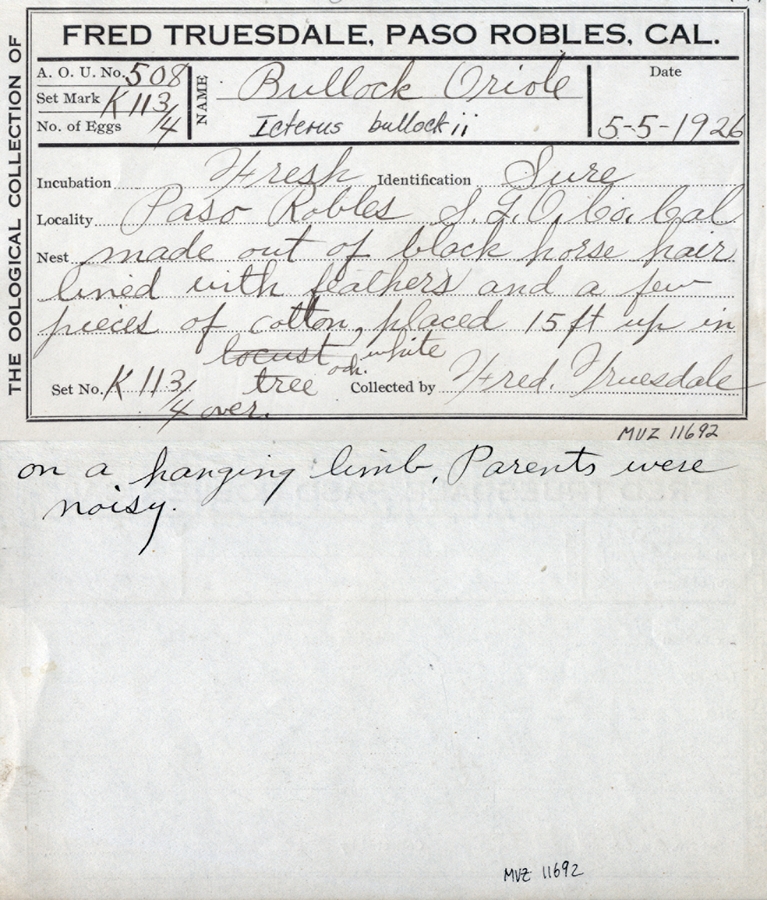 THE OOLOGICAL COLLECTION OF
FRED TRUESDALE, PASO ROBLES, CAL.
A. O. U. No. 508
Set Mark K 113/4
No. of Eggs
NAME Bullock Oriole
Icterus bullockii
Date
5-5-1926
Incubation Fresh Identification Sure
Locality Paso Robles S.L.O. Co. Cal
Nest made out of black horse hair
lined with feathers and a few
pieces of cotton, placed 15 ft up in
locust white
tree
Set No. K 113/4 Collected by Fred. Truesdale
over.
MVZ 11692
on a hanging limb. Parents were
noisy.
MVZ 11692